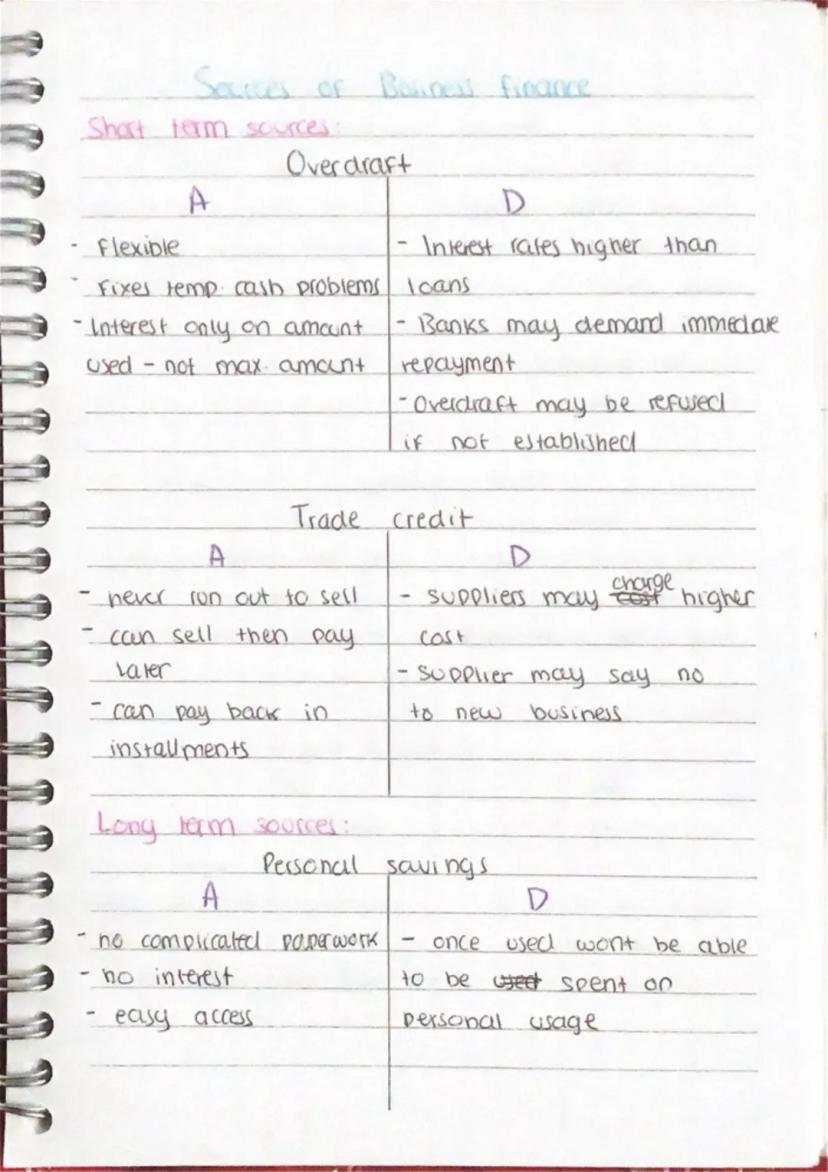 Sources of Business Finance
Short term sources:
Overdraft
A
- Flexible
- Fixes temp. cash problems
- Interest only on amount
used - not max. amount
D
- Interest rates higher than
loans
- Banks may demand immediate
repayment
- Overdraft may be refused
if not established
Trade credit
A
- never run out to sell
- can sell then pay
later
- can pay back in
installments
D
- suppliers may charge higher
cost
- supplier may say no
to new business
Long term sources:
Personal savings
A
- no complicated paperwork
- no interest
- easy access
D
- once used wont be able
to be used spent on
personal usage